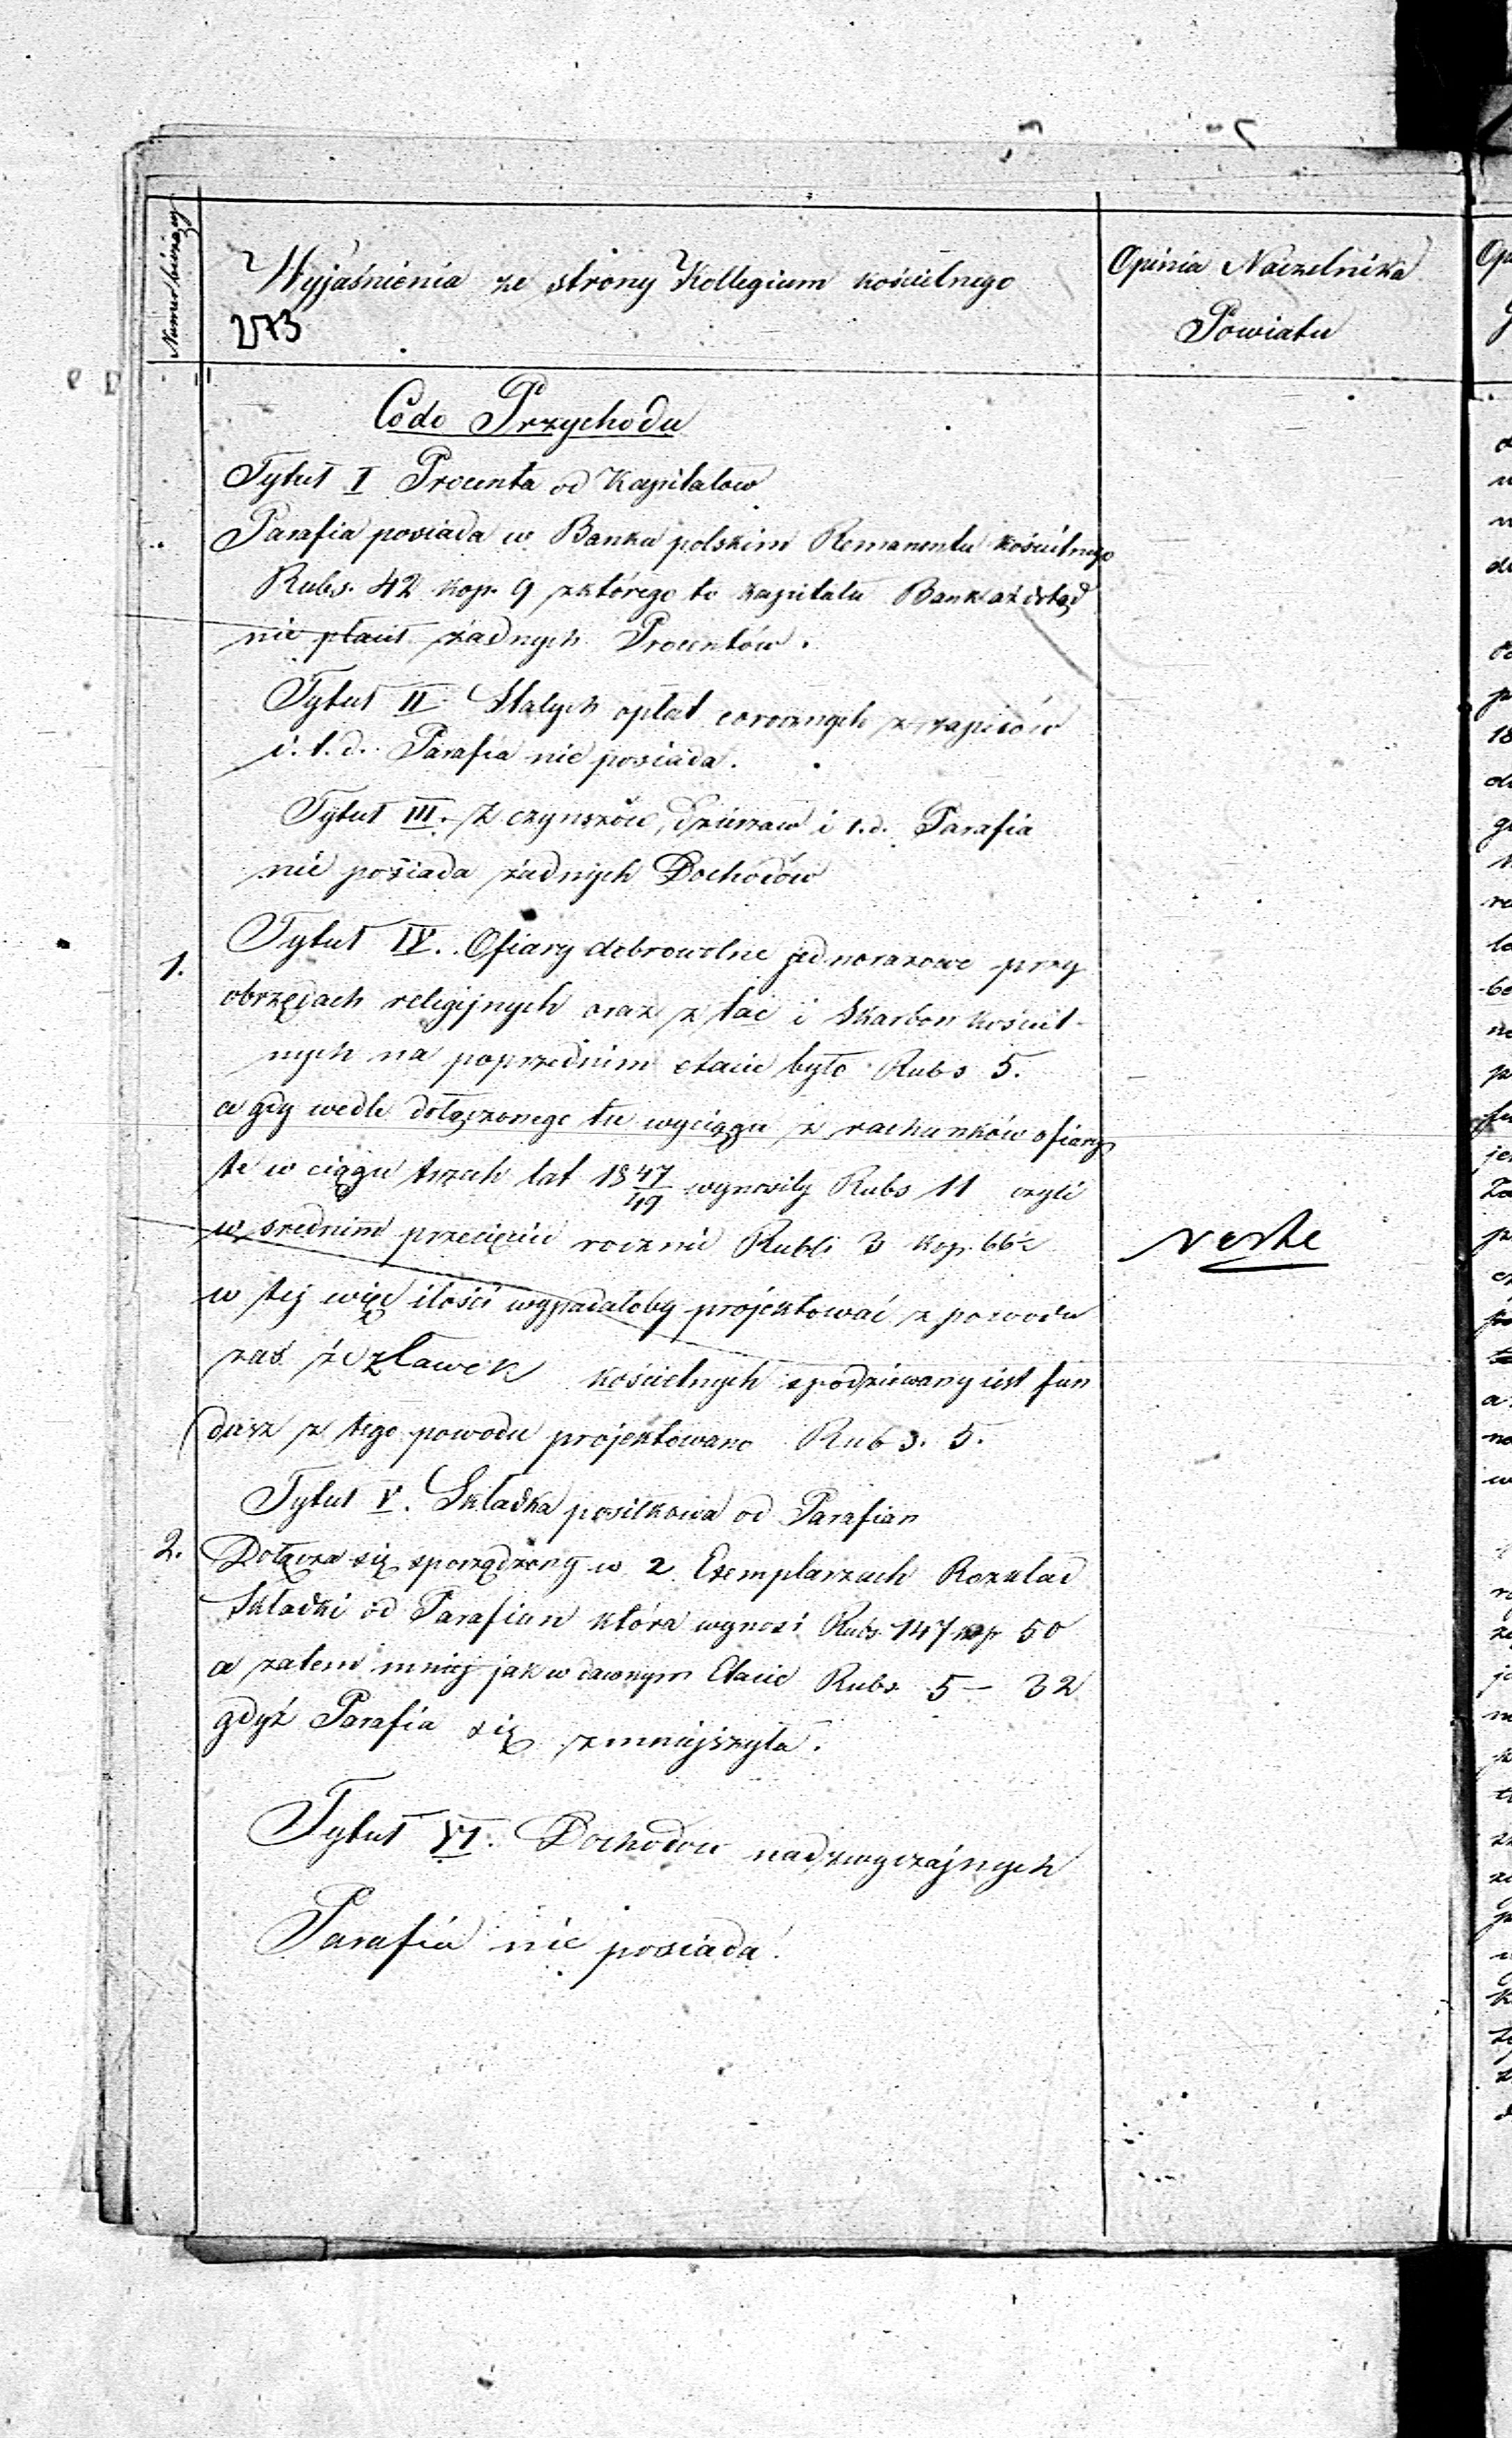 Numer bieżący
Wyjaśnienia ze strony Kollegium kościelnego
273
Opinia Naczelnika
Powiatu
Codo Przychodu
Tytuł I Procenta od Kapitałów
Parafia posiada w Banku polskim Remanentu kościelnego
Rubs. 42 kop. 9 z którego to kapitału Bank aż dotąd
nie płacił żadnych Procentów.
Tytuł II Stałych opłat corocznych z zapisów
i. t. d. Parafia nie posiada.
Tytuł III. Z czynszów, dzierzaw i t. d. Parafia
nie posiada żadnych Dochodów
1. Tytuł IV. Ofiary dobrowolne jednorazowe przy
obrzędach religijnych oraz z tac i Skarbon kościel-
nych na poprzednim etacie było Rubs 5.
a gdy wedle dołączonego tu wyciągu z rachunków ofiary
te w ciągu trzech lat 18 47/49 wynosiły Rubs 11 czyli
w srednim przecięciu rocznie Rubli 3 kop. 66
w tej więc ilości wypadałoby projektować z powodu
zaś że z Ławek kościelnych spodziewany iest fun
dusz z tego powodu projektowano Rubs. 5.
Tytuł V. Składka posiłkowa od Parafian
2. Dołącza się sporządzony w 2 Exemplarzach Rozkład
Składki od Parafian która wynosi Rubs. 147 kop 50
a zatem mniej jak w dawnym Etacie Rubs 5 – 32
gdyż Parafia się zmniejszyła.
Tytuł VI. Dochodów nadzwyczajnych
Parafia nie posiada.